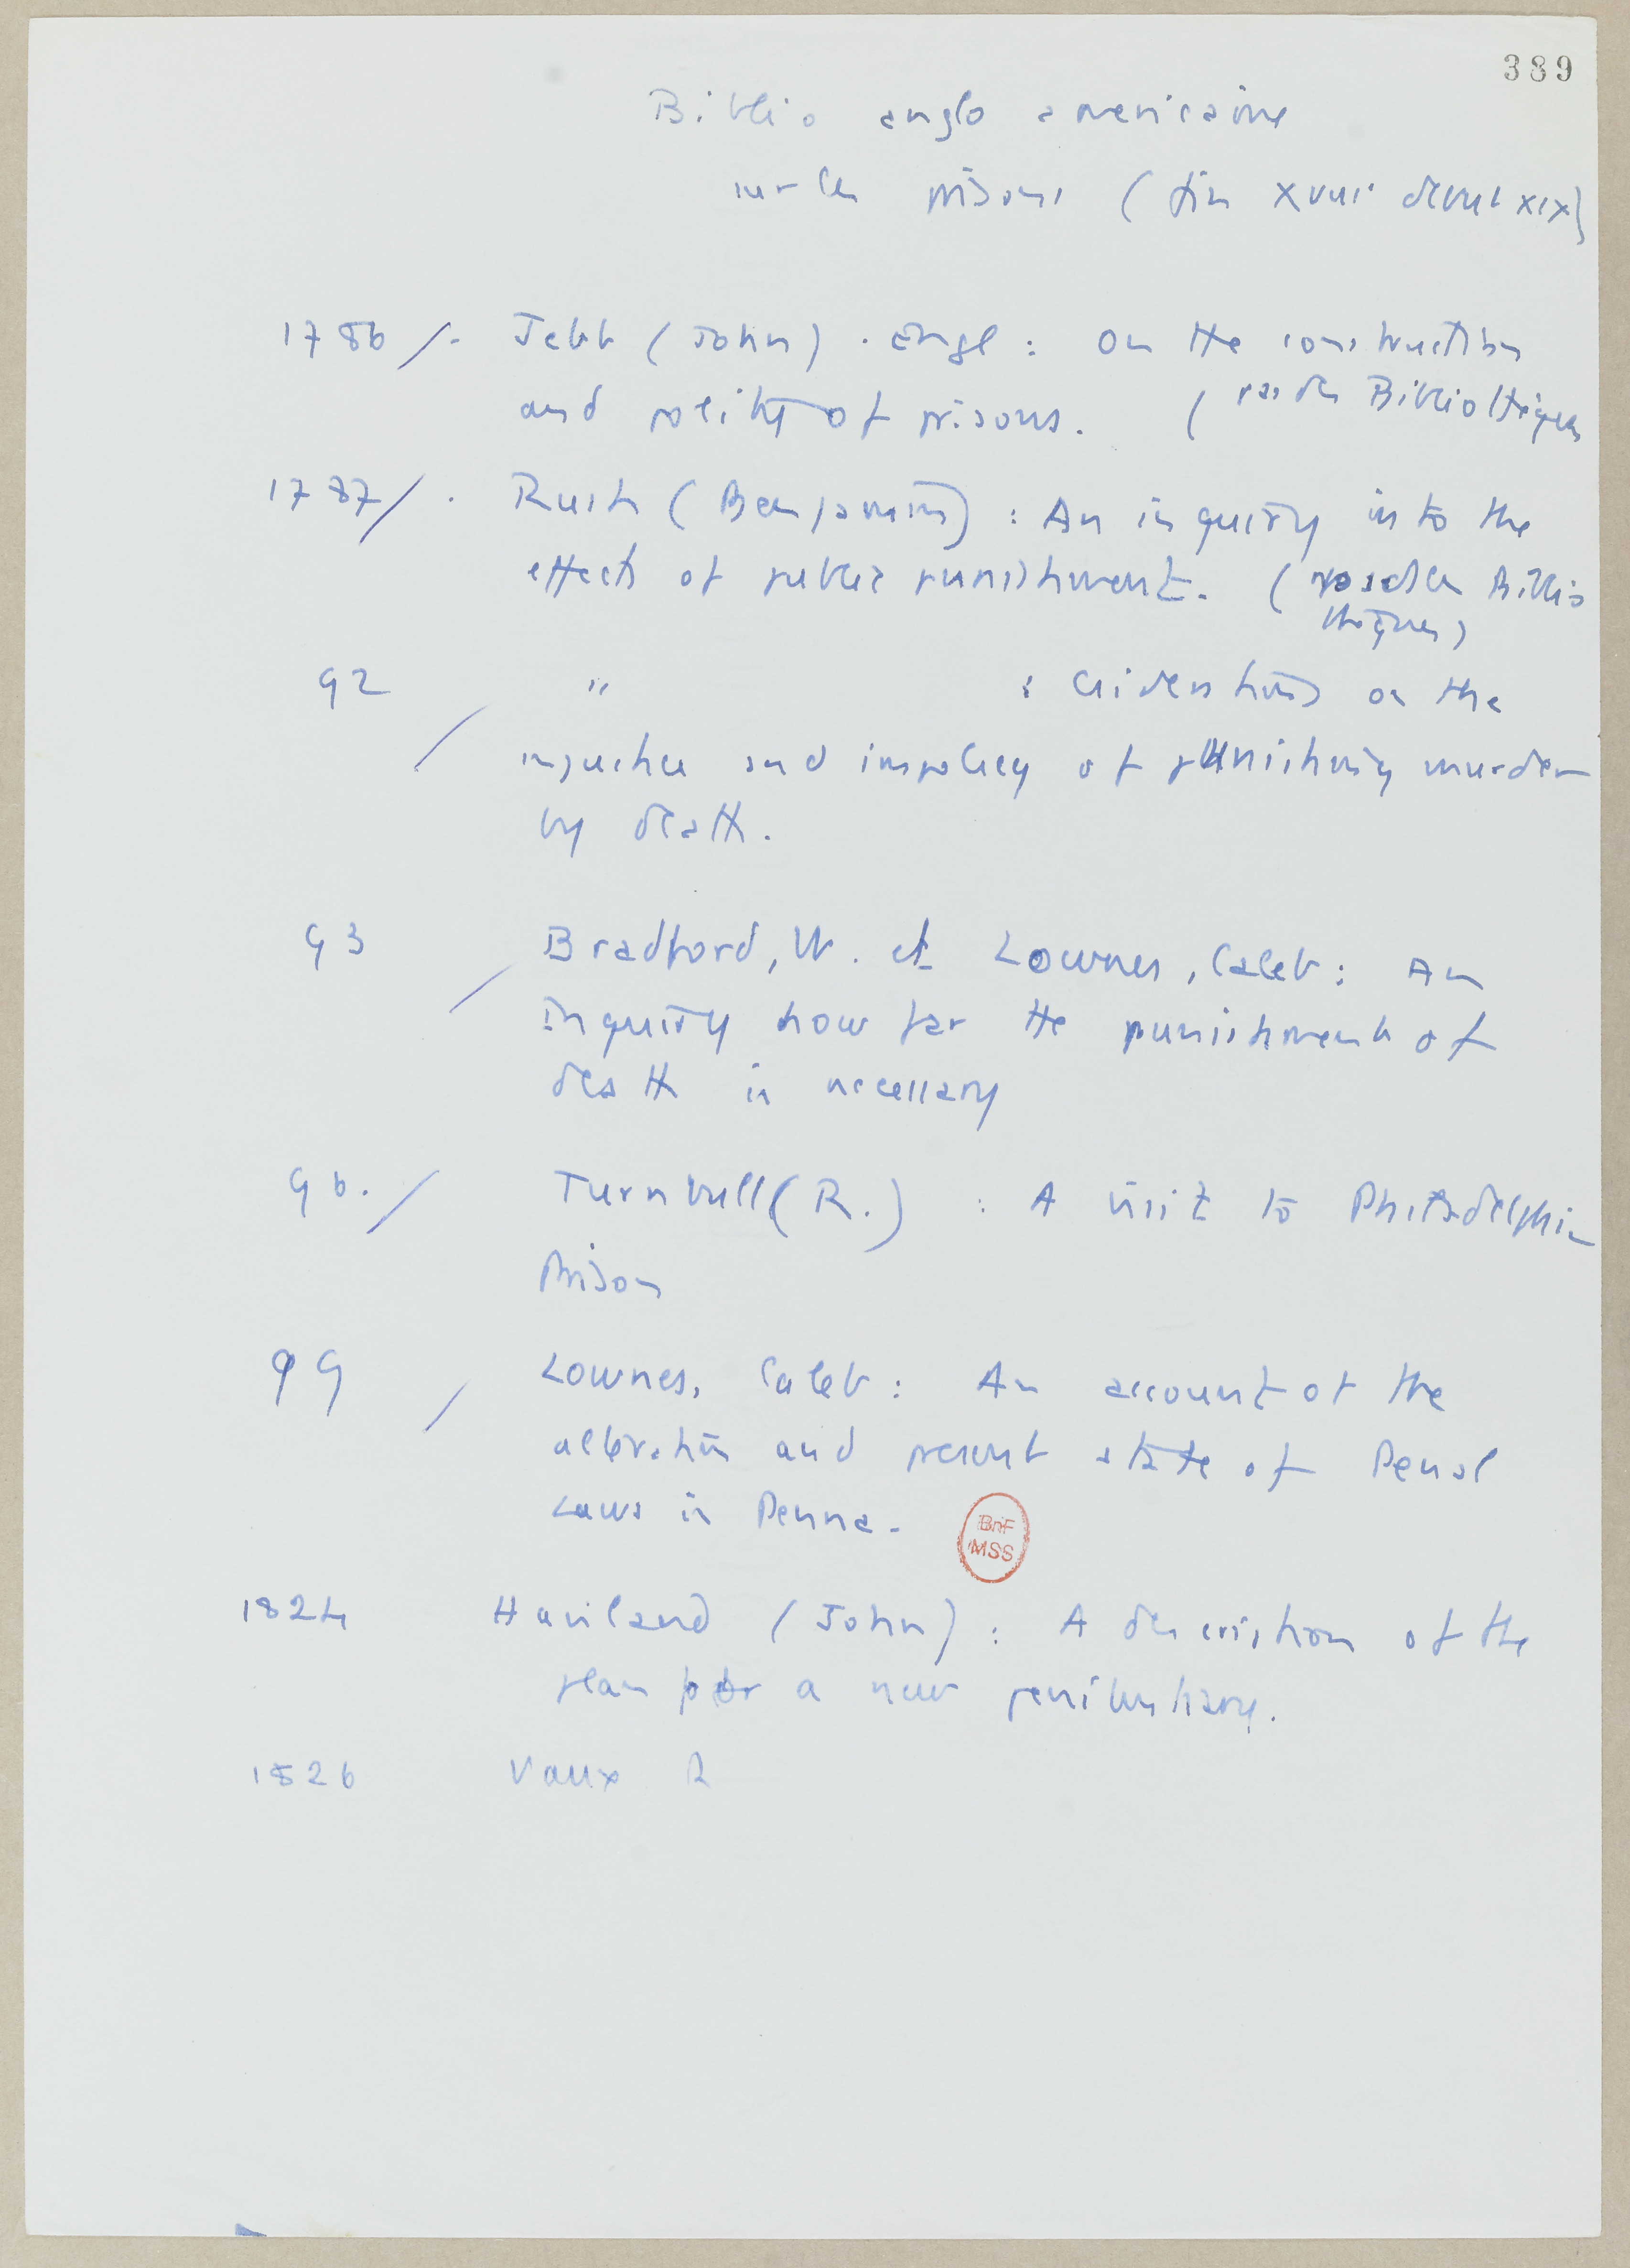 389
Biblio anglo americaine
sur les prisons (fin XVIII debut XIX)
1786 /. Jebb (John). Angl : On the construction
and polity of prisons. (pas ds Bibliothèques
1787 /. Rush (Benjamin) : An inquiry into the
effects of public punishment. (pas ds les Biblio
thèques)
92 " : Considerations on the
injustice and impolicy of punishing murder
by death.
93 / Bradford, W. et Lownes, Caleb : An
inquiry how far the punishment of
death is necessary
96. / Turnbull (R.) : A visit to Philadelphia
Prison
99 / Lownes, Caleb : An account of the
alteration and present state of Penal
Laws in Penna.
BnF
MSS
1824 Haviland (John) : A description of the
plan for a new penitentiary.
1826 Vaux R